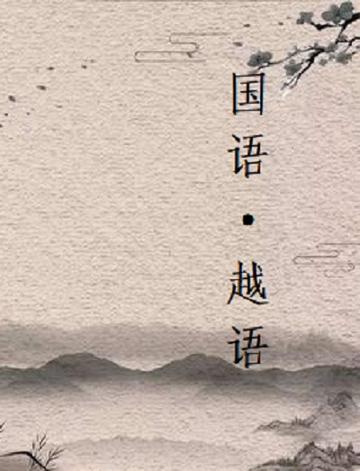 国语·越语